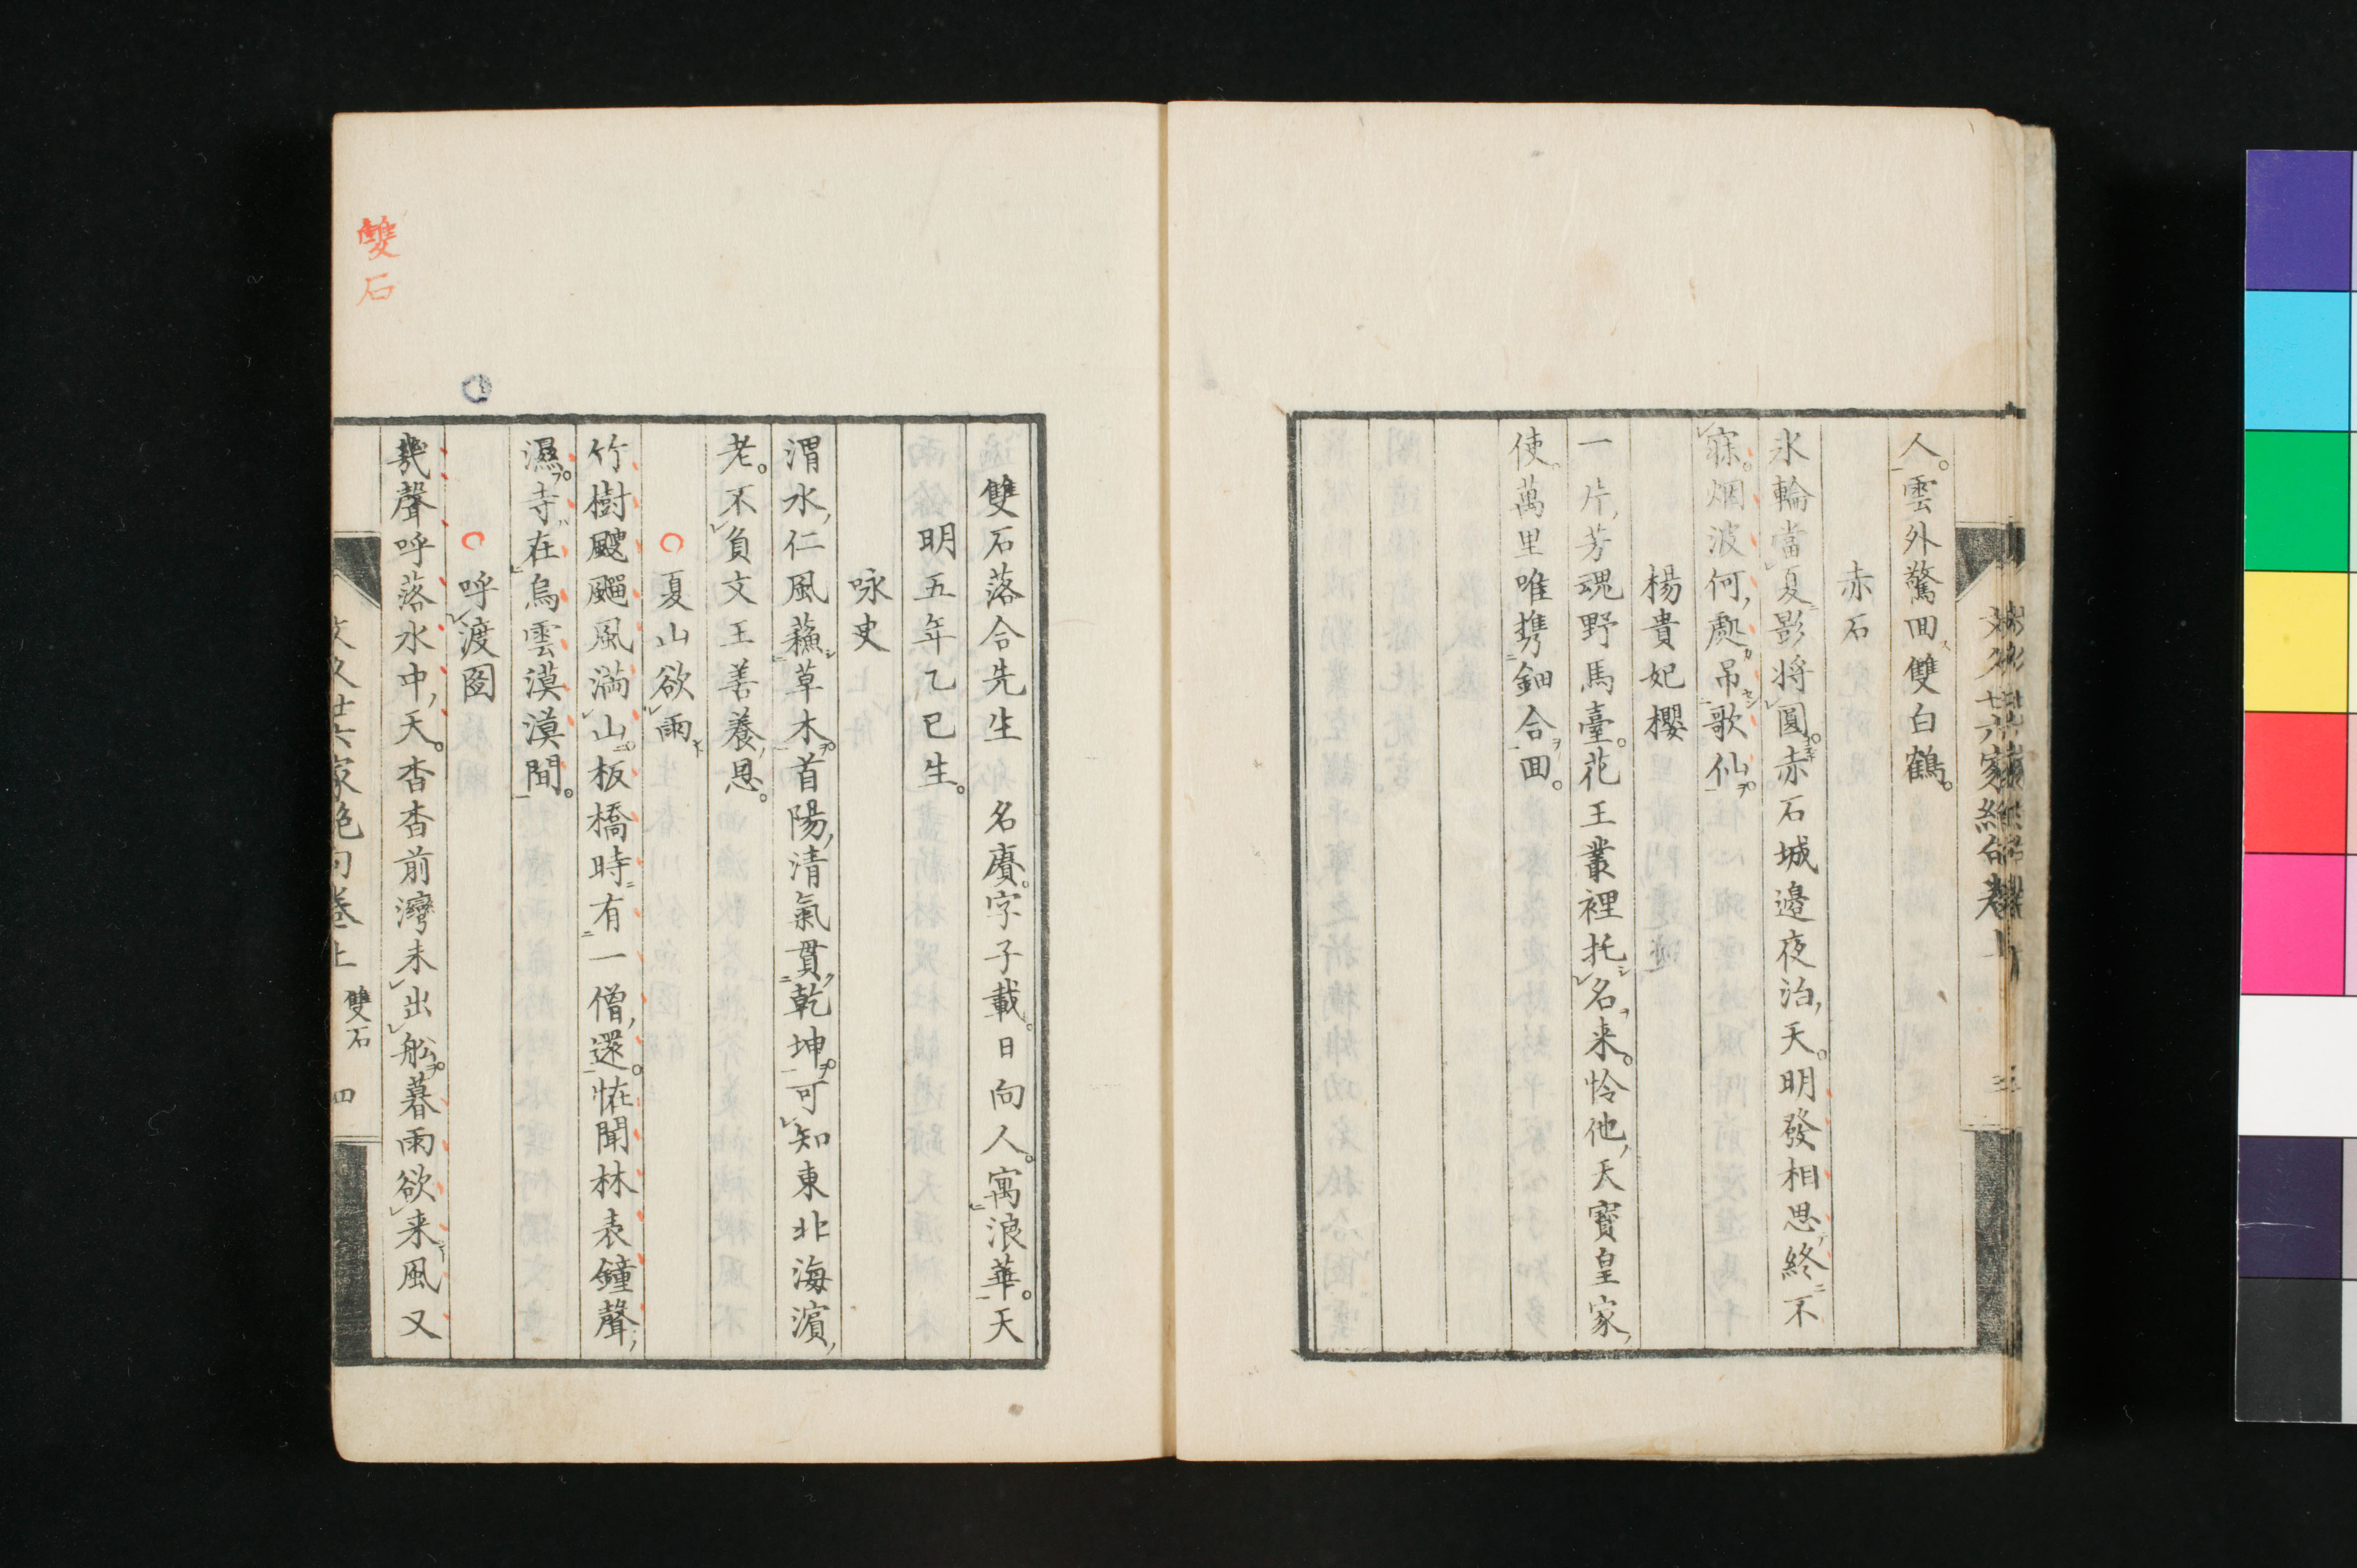 人雲外驚回雙白鶴
赤石
氷輪當夏影將圓赤石城邉夜泊天明發相思終不
寐烟波何處吊歌仙
楊貴妃櫻
一片芳魂野馬臺花王叢裡托名来怜他天寶皇家
使萬里唯携鈿合回
雙石落合先生 名賡字子載日向人寓浪華天
明五年乙巳生
咏史
渭水仁風蘓草木首陽清氣貫乾坤可知東北海濵
老不負文王善養恩
夏山欲雨
竹樹颼飀風満山板橋時有一僧還怪聞林表鐘聲
濕寺在烏雲漠漠間
呼渡圖
幾聲呼落水中天杳杳前灣未出舩暮雨欲来風又
文久廿六家絶句卷上 雙石 四
雙石